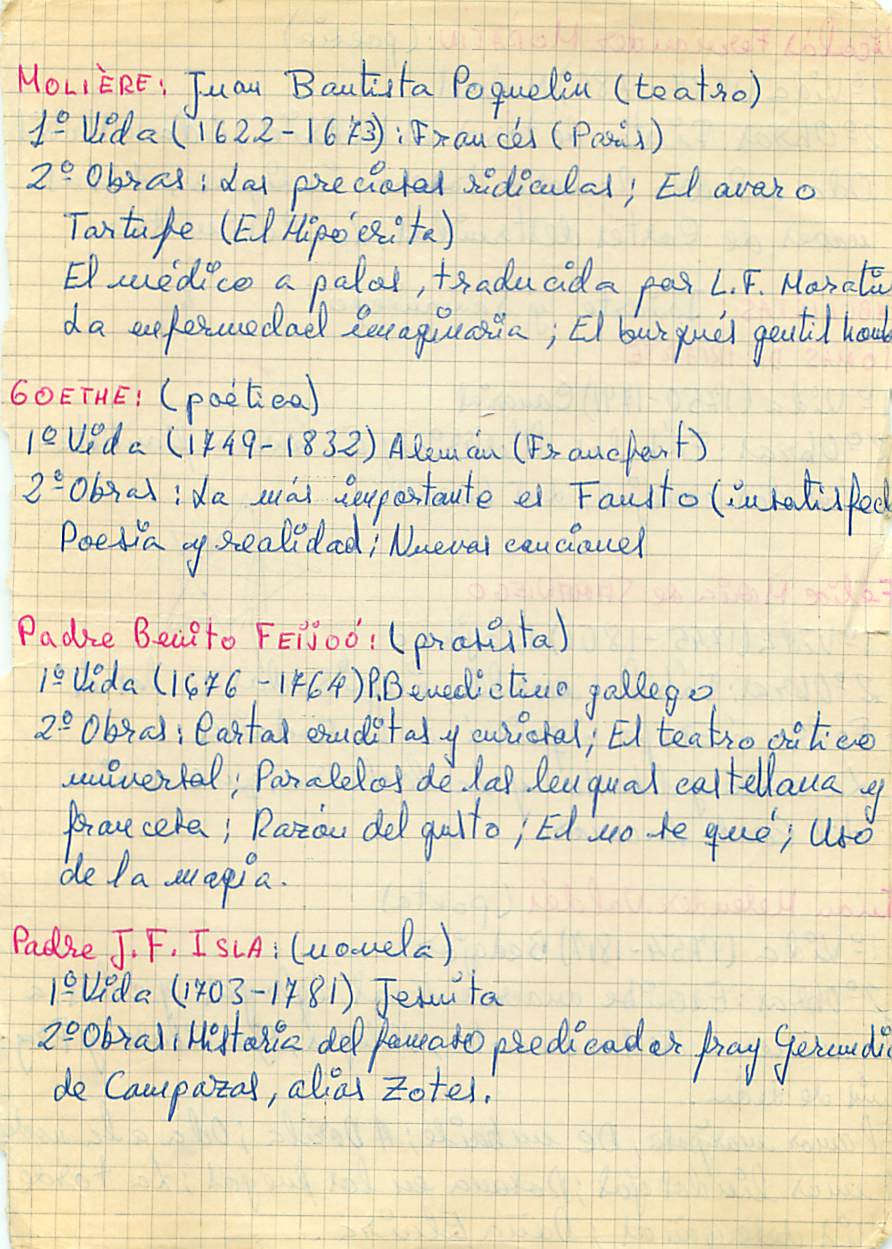 MOLIÈRE: Juan Bautista Poquelin (teatro)
1º Vida (1622-1673): Francés (París)
2º Obras: Las preciosas ridiculas; El avaro
Tartufe (El Hipócrita)
El médico a palos, traducida por L.F. Moratín
La enfermedad imaginaria; El burgués gentil homb
GOETHE: (poética)
1º Vida (1749-1832) Alemán (Francfort)
2º Obras: La más importante es Fausto (insatisfec
Poesía y realidad; Nuevas canciones
Padre Benito FEIJOÓ: (prosista)
1º Vida (1676-1764) P. Benedictino gallego
2º Obras: Cartas eruditas y curiosas; El teatro crítico
universal; Paralelos de las lenguas castellana y
francesa; Razón del gusto; El no se qué; Uso
de la magia.
Padre J.F. ISLA: (novela)
1º Vida (1703-1781) Jesuita
2º Obras: Historia del famoso predicador fray Gerundi
de Campazas, alias Zotes.